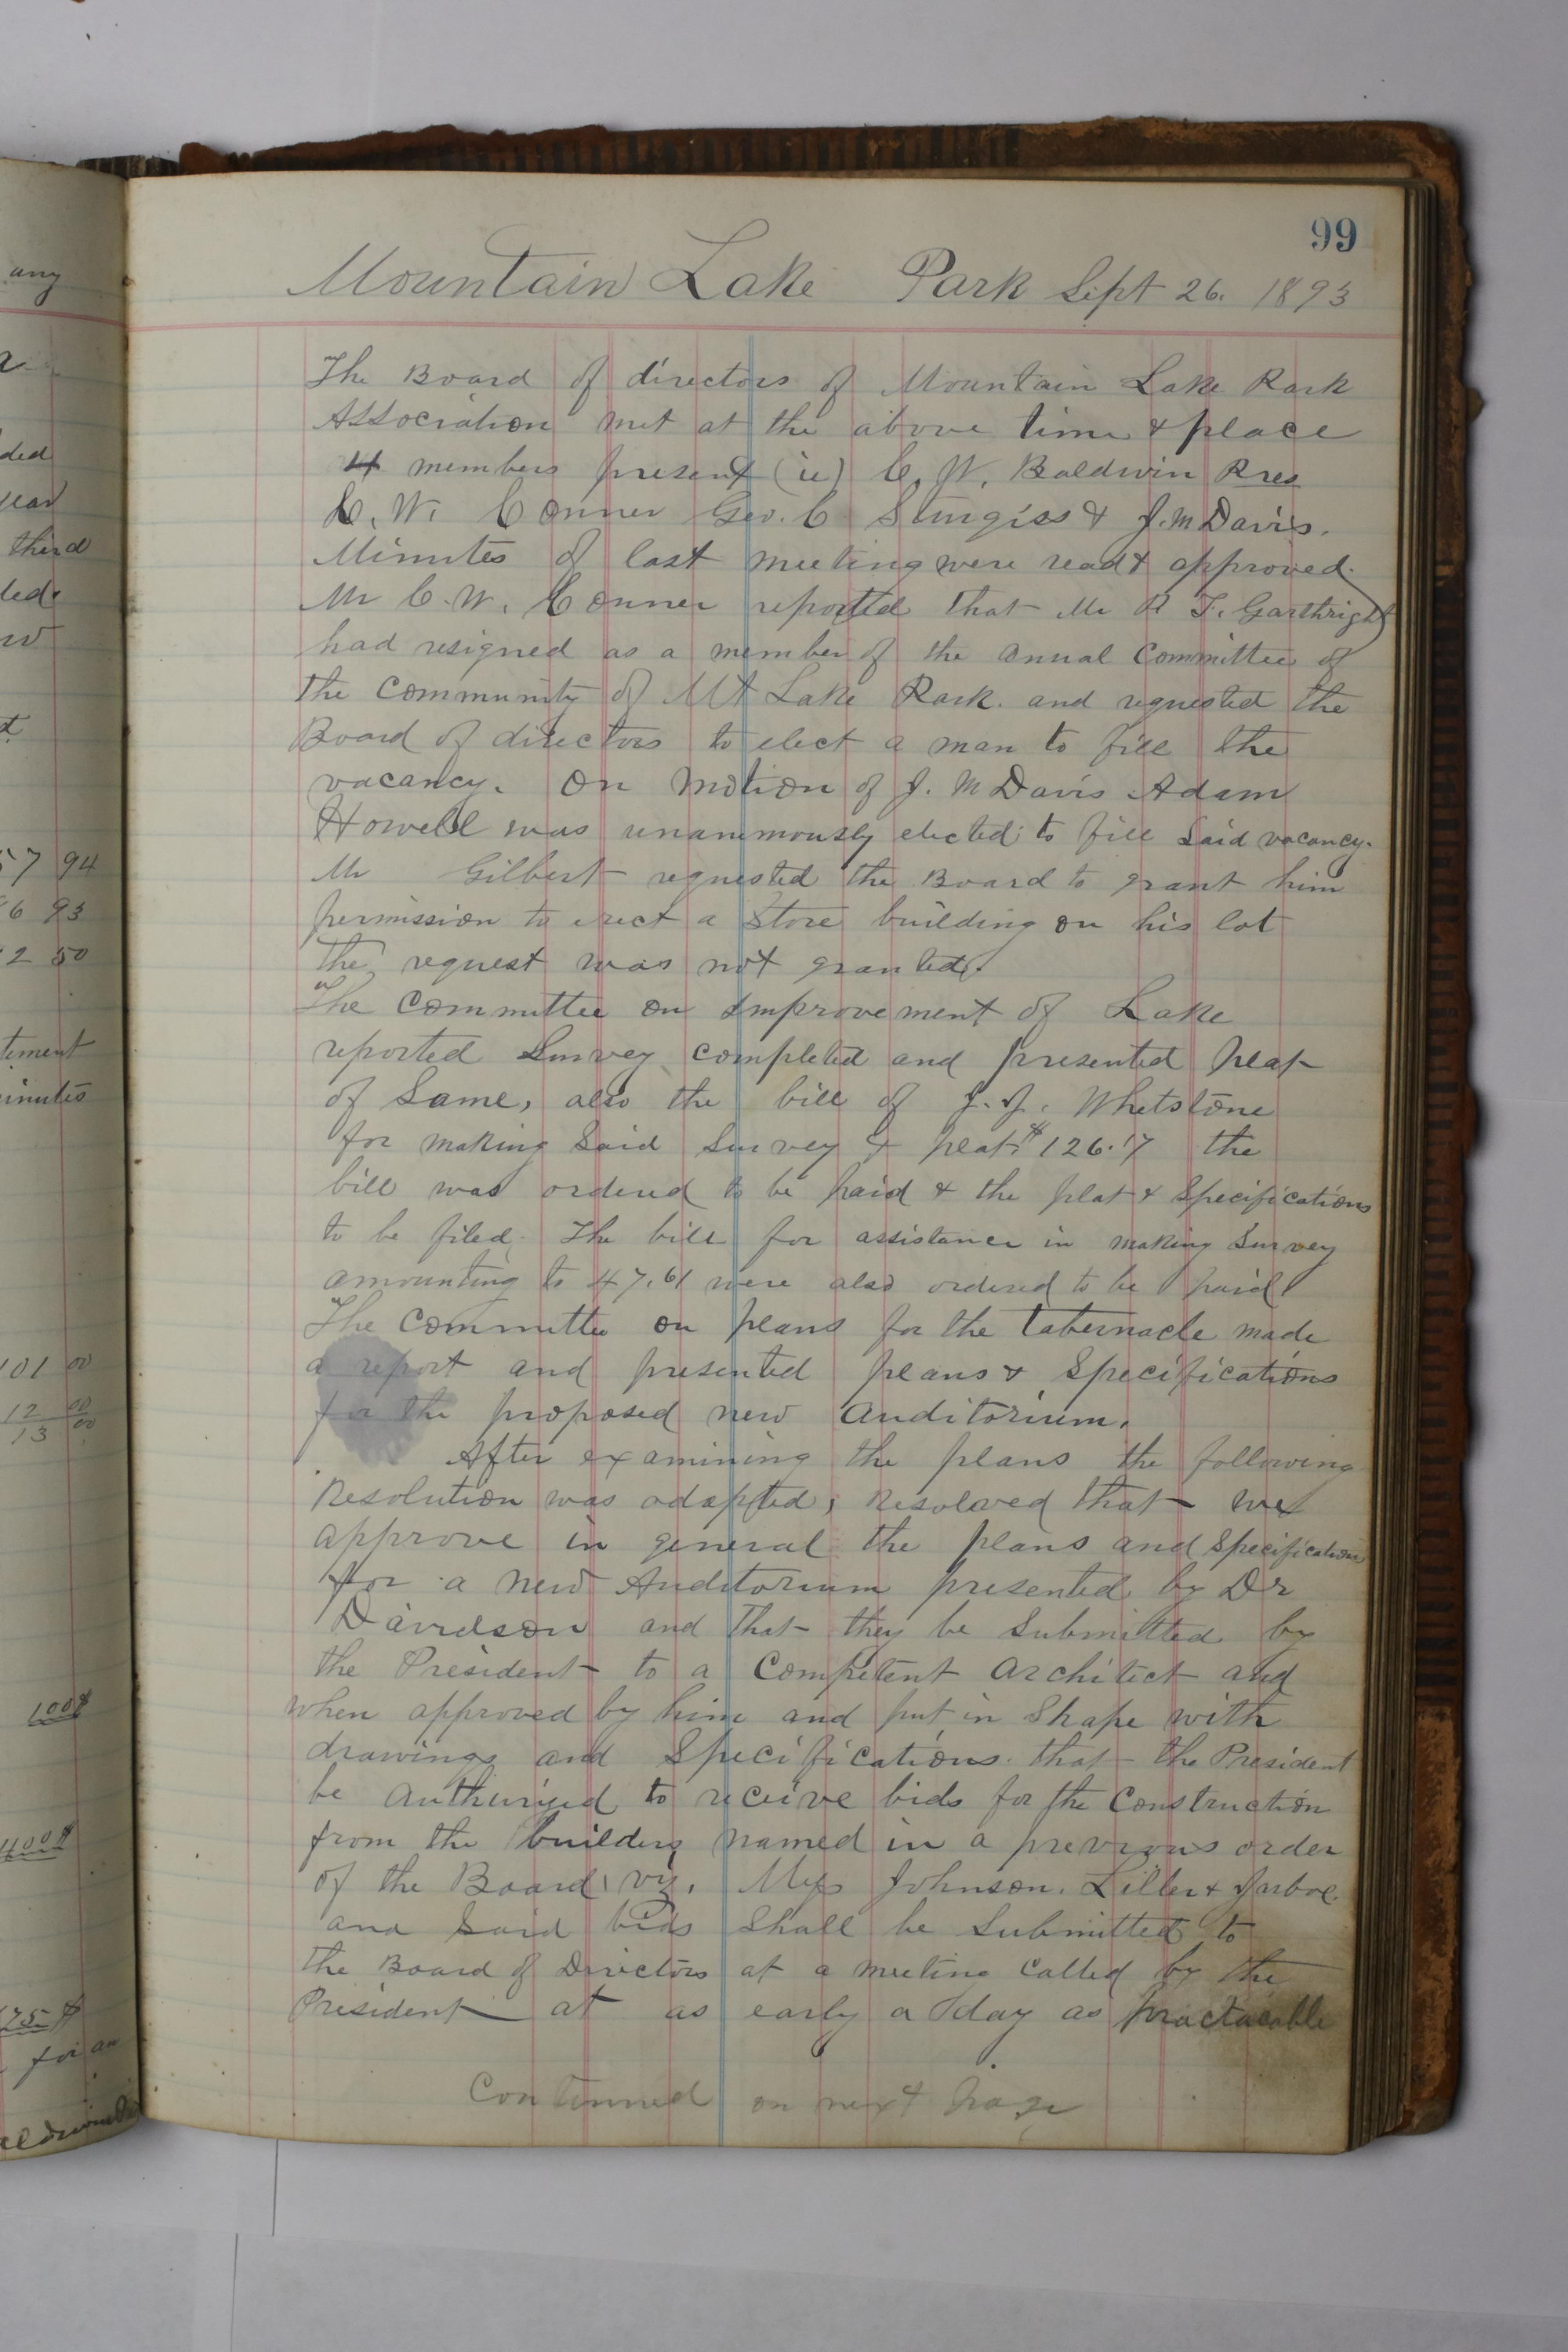 any
ded
year
third
57 94
6 93
2 50
tement
minutes
101 00
12 00
13 00
100$
400$
175 $
for an
99
Mountain Lake Park Sept 26. 1893
The Board of directors of Mountain Lake Park
Association met at the above time & place
4 members present (ie) C. W. Baldwin Pres
C. W. Conner Geo. C Sturgiss & J. M Davis.
Minutes of last meeting were read & approved.
Mr C. W. Conner reported that Mr R T. Garthright
had resigned as a member of the anual committee of
the community of Mt Lake Park. and requested the
Board of directors to elect a man to fill the
vacancy. On motion of J. M Davis Adam
Howell was unanimously elected to fill said vacancy.
Mr Gilbert requested the Board to grant him
permission to erect a store building on his lot
the request was not granted.
The committee on improvement of Lake
reported Survey completed and presented plat
of Same, also the bill of J. J. Whetstone
for making Said Survey & plat. $126.17 the
bill was ordered to be paid & the plat & Specifications
to be filed. The bill for assistance in making Survey
amounting to 47.61 were also ordered to be paid
The committee on plans for the tabernacle made
a report and presented plans & Specifications
for the proposed new Auditorium.
After examining the plans the following
Resolution was adopted, Resolved that we
approve in general the plans and Specification
for a new Auditorium presented by Dr
Davidson and that they be Submitted by
the President to a Competent Architect and
when approved by him and put in Shape with
drawings and Specifications. that the President
be Authorized to receive bids for the Construction
from the builders named in a previous order
of the Board, viz, Johnson. Liller & Jarboe.
and Said bids Shall be Submitted to
the Board of Directors at a meeting called by the
President at as early a day as practacable
Continued on next page